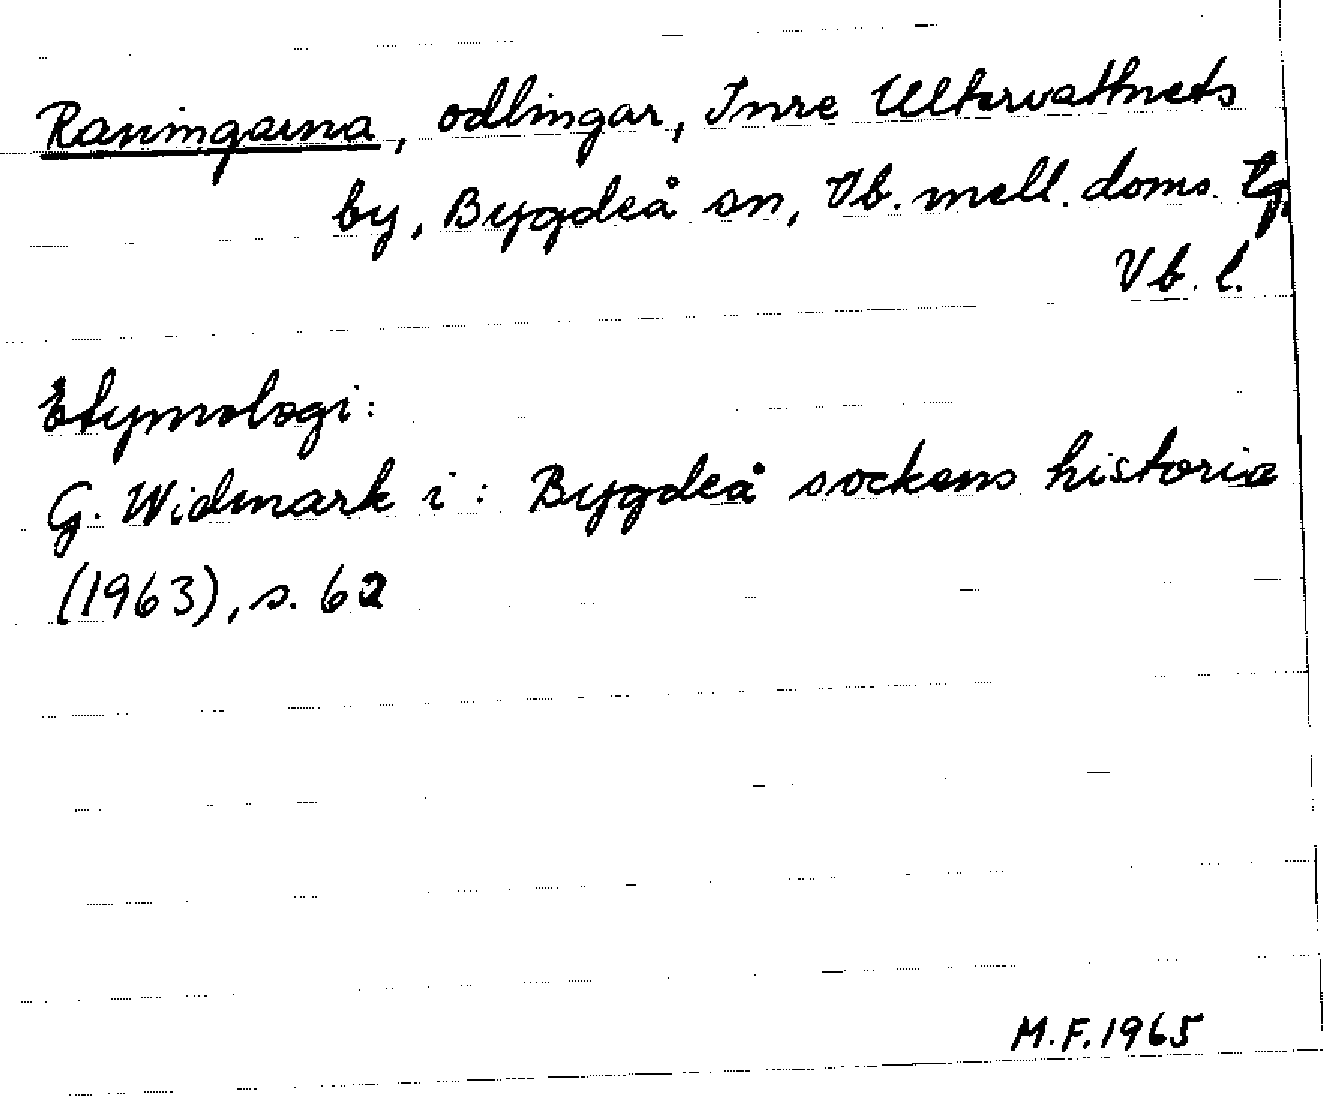 Raningarna, odlingar, Inre Ultervattnets
by, Bygdeå sn, Vb. mell. doms. tg,
Vb. l.
Etymologi:
G. Widmark i: Bygdeå sockens historia
(1963), s. 62
M.F. 1965